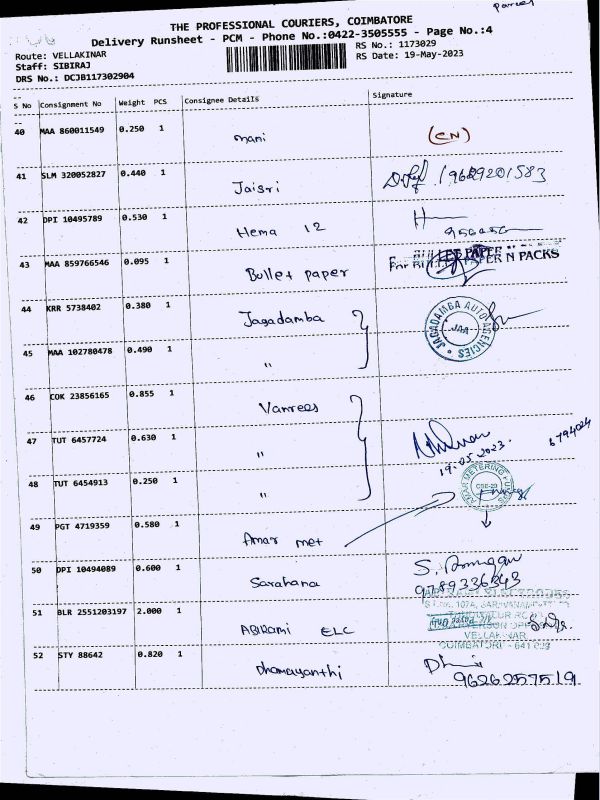 parcel
THE PROFESSIONAL COURIERS, COIMBATORE
Delivery Runsheet - PCM - Phone No.:0422-3505555 - Page No.:4
Route: VELLAKINAR
RS No.: 1173029
Staff: SIBIRAJ
RS Date: 19-May-2023
DRS No.: DCJB117302904
S No Consignment No Weight PCS Consignee Details Signature
40 MAA 860011549 0.250 1 mani (CN)
41 SLM 320052827 0.440 1 Jaisri 19629201583
42 DPI 10495789 0.530 1 Hema 12
43 MAA 859766546 0.095 1 Bullet paper
For BULLET PAPER N PACKS
44 KRR 5738402 0.380 1 Jagadamba
JAGADAMBA AUTO AGENCIES
JAA
45 MAA 102780478 0.490 1 "
46 COK 23856165 0.855 1 Vanrees
47 TUT 6457724 0.630 1 "
19.05.2023.
48 TUT 6454913 0.250 1 "
49 PGT 4719359 0.580 1 Amar met
50 DPI 10494089 0.600 1 Sarahana
9789336343
51 BLR 2551203197 2.000 1 ABIRAMI ELC
A/c Payee Only
VELLAKINAR
COIMBATORE - 641 029
52 STY 88642 0.820 1 Dhamayanthi
96262 57519